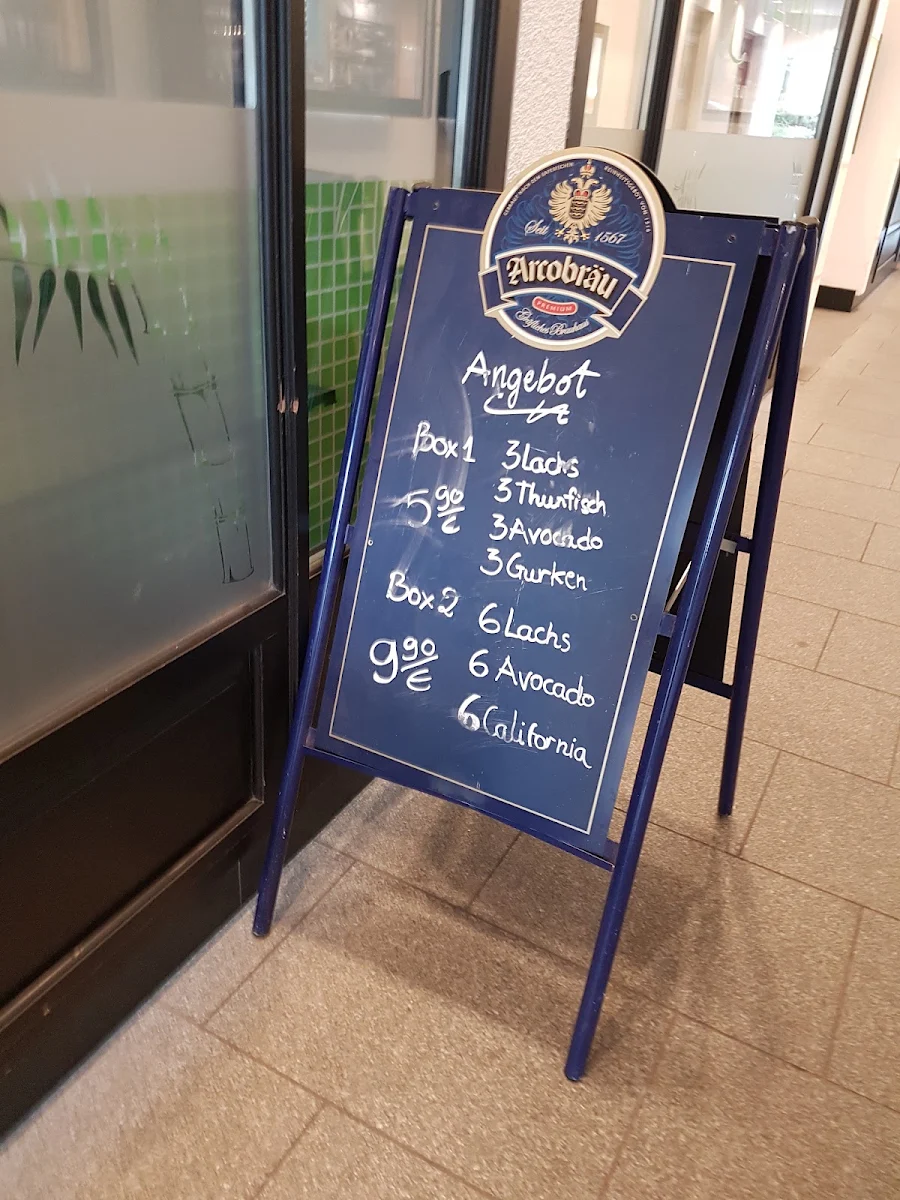 GEBRAUT NACH DEM BAYERISCHEN REINHEITSGEBOT VON 1516
Seit 1567
Arcobräu
PREMIUM
Gräfliches Brauhaus
Angebot
Box 1 3 Lachs
5 90/€ 3 Thunfisch
3 Avocado
3 Gurken
Box 2 6 Lachs
9 90/€ 6 Avocado
6 California